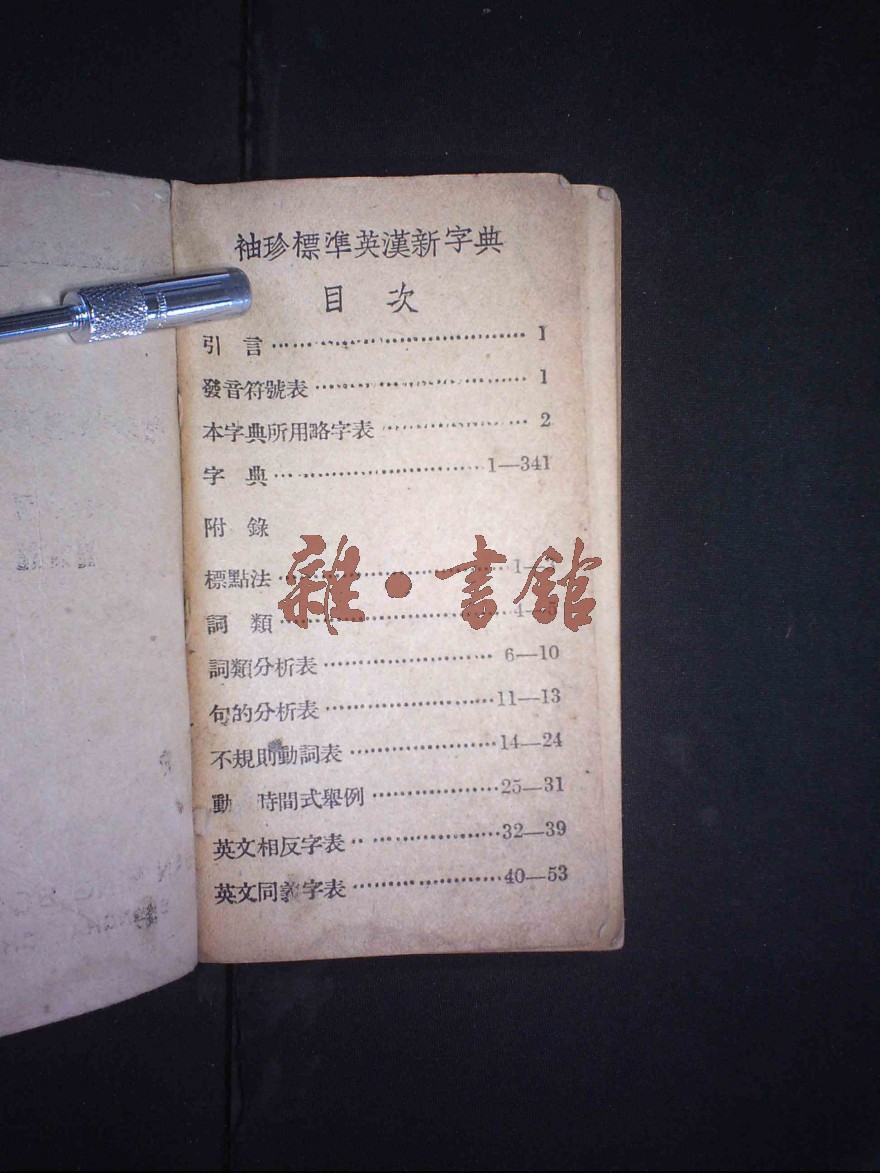 袖珍標準英漢新字典
目 次
引 言 1
發音符號表 1
本字典所用略字表 2
字 典 1—341
附 錄
標點法 1—3
詞 類 4—5
詞類分析表 6—10
句的分析表 11—13
不規則動詞表 14—24
動 時間式舉例 25—31
英文相反字表 32—39
英文同義字表 40—53
雜·書館